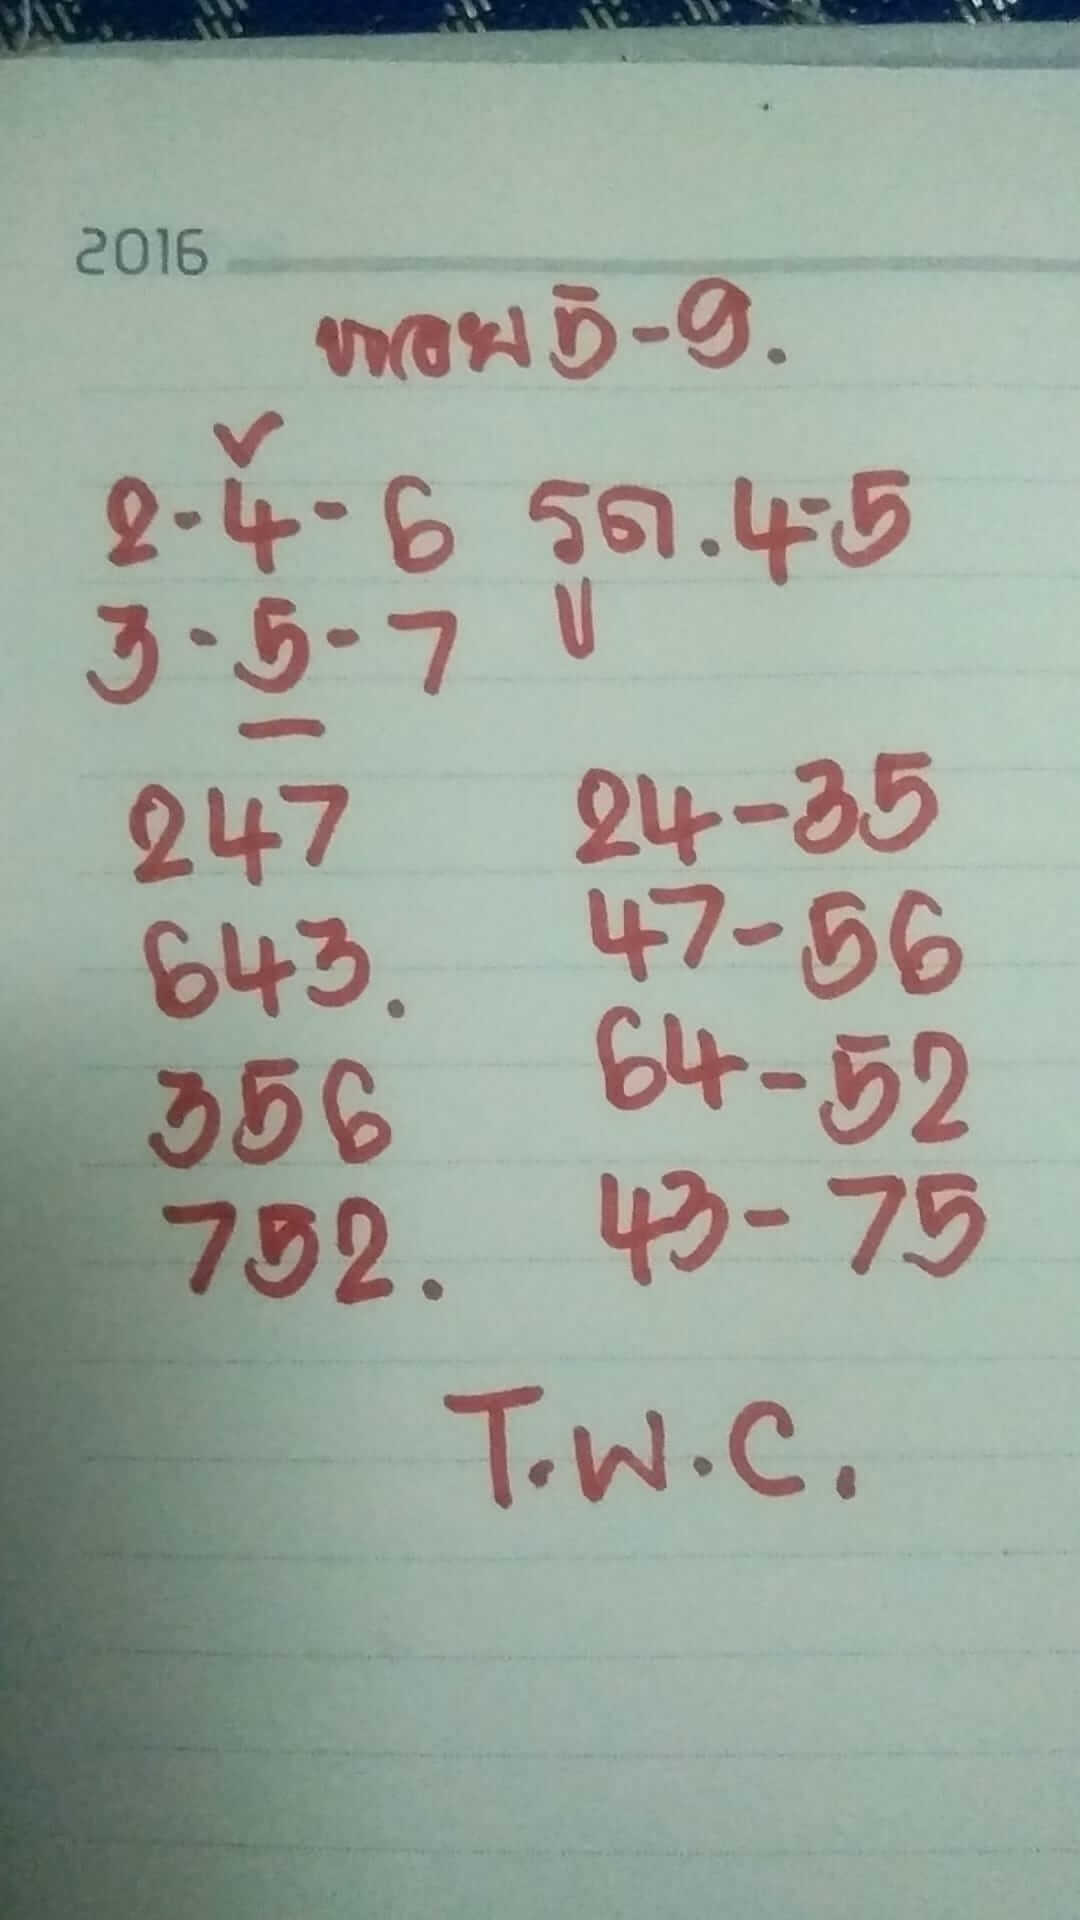 2016
หลอย 5-9.
2-4-6 รูด.4-5
3-5-7
247 24-35
643. 47-56
356 64-52
752. 43-75
T.W.C.